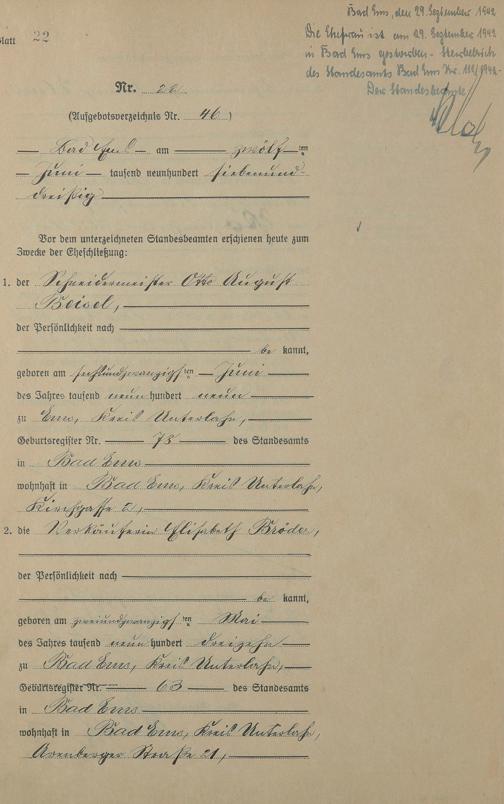 Bad Ems, den 29. September 1942
Die Ehefrau ist am 29. September 1942
in Bad Ems gestorben - Sterbebuch
des Standesamts Bad Ems Nr. 111/1942 -
Der Standesbeamte
Blatt 22
Nr. 22
(Aufgebotsverzeichnis Nr. 46)
Bad Ems am zwölften
Juni tausend neunhundert siebenund-
dreißig
Vor dem unterzeichneten Standesbeamten erschienen heute zum
Zwecke der Eheschließung:
1. der Schneidermeister Otto August
Beisel,
der Persönlichkeit nach
be kannt,
geboren am sechsundzwanzigsten Juni
des Jahres tausend neun hundert neun
zu Ems, Kreis Unterlahn,
Geburtsregister Nr. 73 des Standesamts
in Bad Ems
wohnhaft in Bad Ems, Kreis Unterlahn,
Kirchgasse 2,
2. die Verkäuferin Elisabeth Bröder,
der Persönlichkeit nach
be kannt,
geboren am zweiundzwanzigsten Mai
des Jahres tausend neun hundert dreizehn
zu Bad Ems, Kreis Unterlahn,
Geburtsregister Nr. 63 des Standesamts
in Bad Ems
wohnhaft in Bad Ems, Kreis Unterlahn,
Arenberger Straße 21,